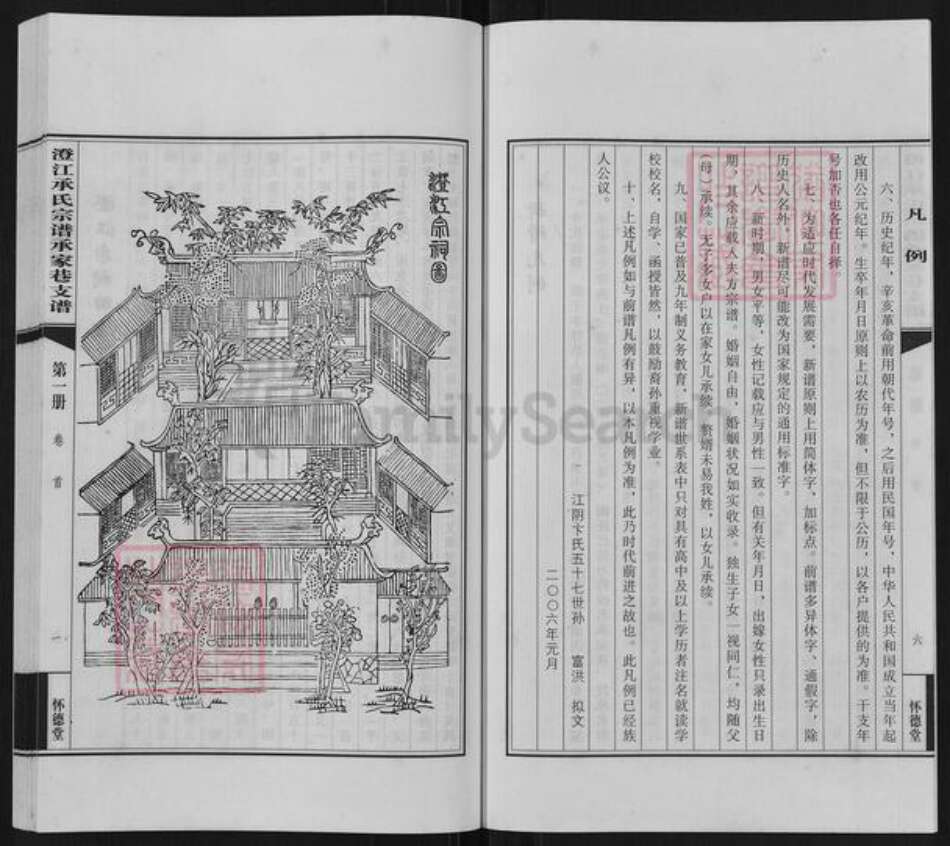 凡例
六
怀德堂
六、历史纪年，辛亥革命前用朝代年号，之后用民国年号，中华人民共和国成立当年起
改用公元纪年。生卒年月日原则上以农历为准，但不限于公历，以各户提供的为准。干支年
号加否也各任自择。
七、为适应时代发展需要，新谱原则上用简体字，加标点。前谱多异体字、通假字，除
历史人名外，新谱尽可能改为国家规定的通用标准字。
八、新时期，男女平等，女性记载应与男性一致。但有关年月日，出嫁女性只录出生日
期，其余应载入夫方宗谱。婚姻自由，婚姻状况如实收录。独生子女一视同仁，均随父
（母）承续。无子多女户以在家女儿承续，赘婿未易我姓，以女儿承续。
九、国家已普及九年制义务教育，新谱世系表中只对具有高中及以上学历者注名就读学
校校名，自学、函授皆然，以鼓励裔孙重视学业。
十、上述凡例如与前谱凡例有异，以本凡例为准，此乃时代前进之故也。此凡例已经族
人公议。
江阴卞氏五十七世孙 富洪 拟文
二〇〇六年元月
澄江宗祠图
澄江承氏宗谱承家巷支谱
第一册
卷首
一
怀德堂
FamilySearch